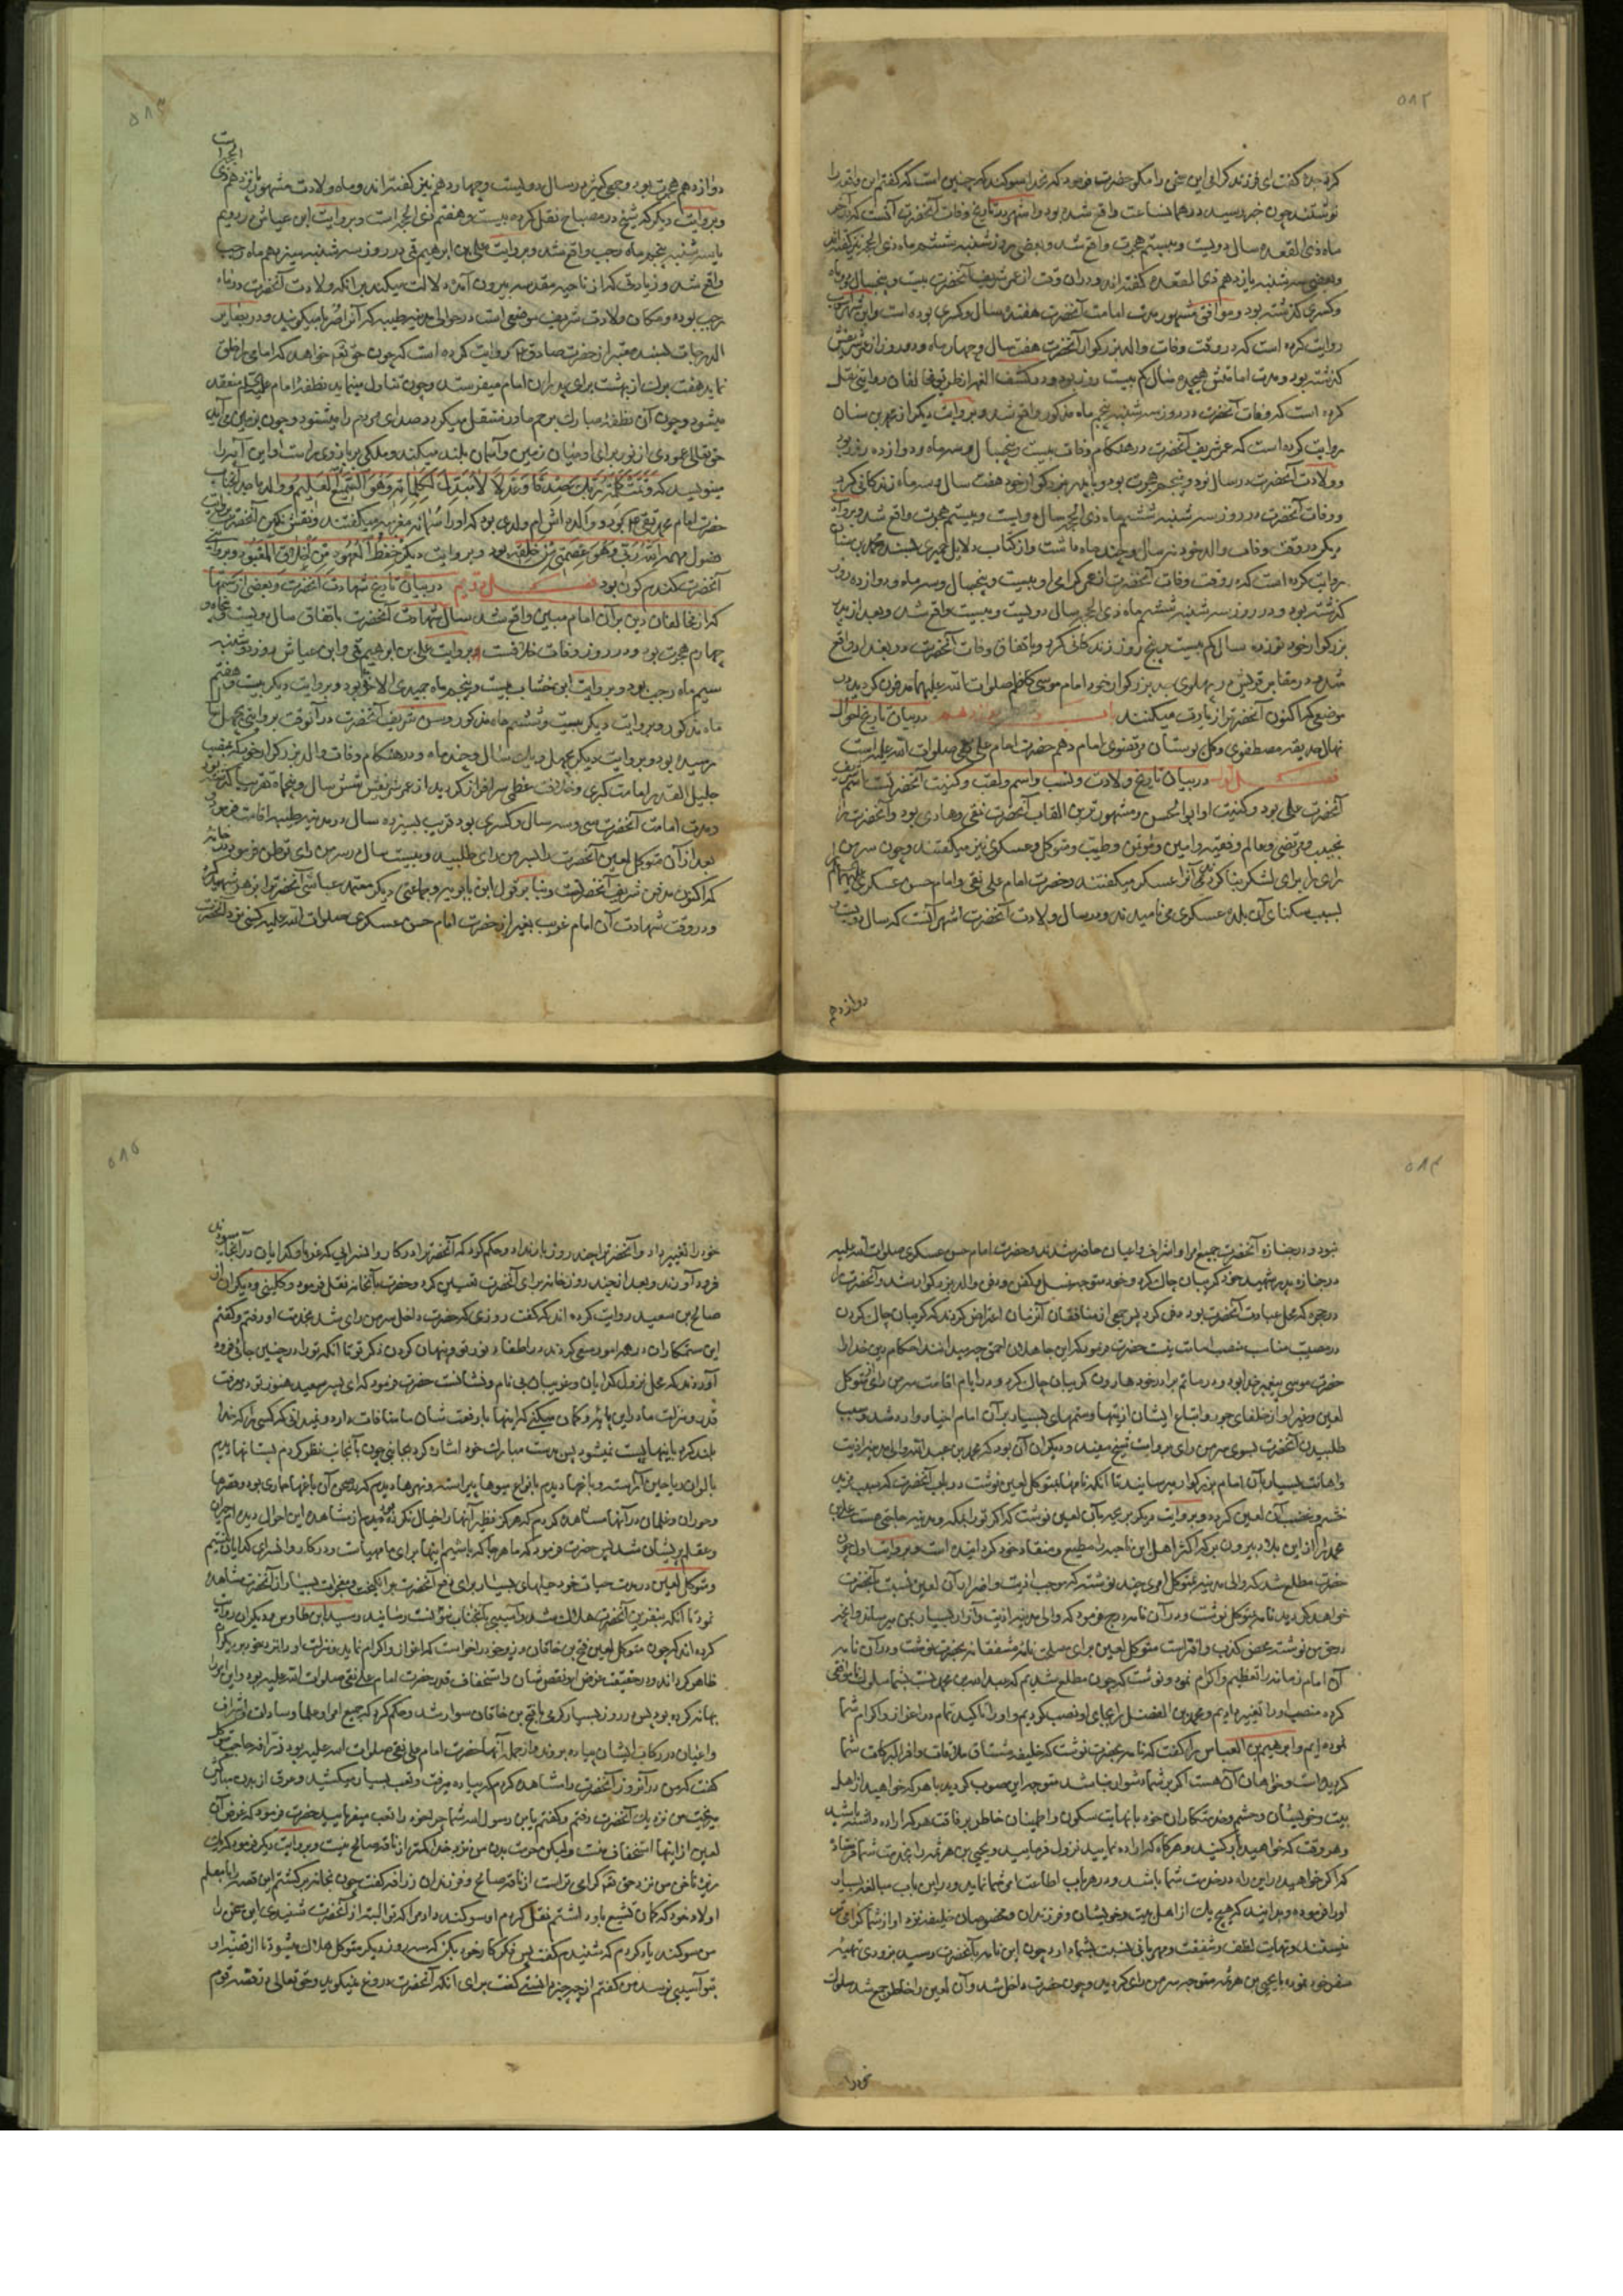 ۵۸۲
کرد جده گفت ای فرزند گرامی این سخن را مگو حضرت فرمود که بخدا سوگند که چنین است که گفتم این واقعه را
نوشتند چون خبر رسید در همانساعت واقع شده بود و اشهر در تاریخ وفات آنحضرت آنست که در آخر
ماه ذی القعده سال دویست و بیستم هجرت واقع شد و بعضی روز شنبه ششم ماه ذی الحجه نیز گفته‌اند
و بعضی سه شنبه یازدهم ذی القعده گفته‌اند و در آن وقت از عمر شریف آنحضرت بیست و پنجسال و دو ماه
و کسری گذشته بود و موافق مشهور مدت امامت آنحضرت هفده سال و کسری بوده است و ابن شهرآشوب
روایت کرده است که در وقت وفات والد بزرگوار آنحضرت هفت سال و چهار ماه و دو روز از عمر شریفش
گذشته بود و مدت امامتش هیجده سال کم بیست روز بود و در کشف الغمه از طریق مخالفان روایتی نقل
کرده است که وفات آنحضرت در روز سه شنبه پنجم ماه مذکور واقع شد و بروایت دیگر از محمد بن سنان
روایت کرده است که عمر شریف آنحضرت در هنگام وفات بیست و پنجسال و سه ماه و دوازده روز بود
و ولادت آنحضرت در سال نود و پنجم هجرت بود و با پدر بزرگوار خود هفت سال و سه ماه زندگانی کرد
و وفات آنحضرت در روز سه شنبه ششم ماه ذی الحجه سال دویست و بیستم هجرت واقع شد و بروایت
دیگر در وقت وفات والد خود نه سال و چند ماه داشت و از کتاب دلایل حمیری بسند محمد بن سنان
روایت کرده است که در وقت وفات آنحضرت از عمر گرامی او بیست و پنجسال و سه ماه و دوازده روز
گذشته بود و در روز سه شنبه ششم ماه ذی الحجه سال دویست و بیست واقع شد و بعد از پدر
بزرگوار خود نوزده سال کم بیست و پنج روز زندگانی کرد و باتفاق وفات آنحضرت در بغداد واقع
شد و در مقابر قریش در پهلوی جد بزرگوار خود امام موسی کاظم صلوات الله علیهما مدفون گردید در
موضعی که اکنون آنحضرت را زیارت میکنند در بیان تاریخ احوال
نهال حدیقه مصطفوی و گل بوستان مرتضوی امام دهم حضرت امام علی نقی صلوات الله علیه است
فصل اول در بیان تاریخ ولادت و نسب و اسم و لقب و کنیت آنحضرت است اسم شریف
آنحضرت علی بود و کنیت او ابوالحسن و مشهورترین القاب آنحضرت نقی و هادی بود و آنحضرت را
نجیب و مرتضی و عالم و فقیه و امین و مؤتمن و طیب و متوکل و عسکری نیز میگفتند و چون سر من
رای را برای لشکر بنا کردند آنرا عسکر میگفتند و حضرت امام علی نقی و امام حسن عسکری علیهما السلام را
بسبب سکنای آن بلده عسکری می نامیدند و در سال ولادت آنحضرت اشهر آنست که سال دویست و
دوازدهم
۵۸۳
دوازدهم هجرت بود و جمعی کثیر در سال دویست و چهاردهم نیز گفته‌اند و ماه ولادت مشهور پانزدهم ذی الحجه است
و بروایت دیگر که شیخ در مصباح نقل کرده بیست و هفتم ذی الحجه است و بروایت ابن عیاش در دویم
یا سه شنبه پنجم ماه رجب واقع شد و بروایت علی بن ابراهیم قمی در روز سه شنبه سیزدهم ماه رجب
واقع شد و زیارتی که از ناحیه مقدسه بیرون آمده دلالت میکند بر آنکه ولادت آنحضرت در ماه
رجب بوده و مکان ولادت شریف موضعی است در حوالی مدینه طیبه که آنرا صریا میگویند و در بصائر
الدرجات بسند معتبر از حضرت صادق ع روایت کرده است که چون حق تعم خواهد که امامی را خلق
نماید هفت برگ از بهشت برای پدر آن امام میفرستد و چون تناول مینماید نطفه امام علیه السلام منعقد
میشود و چون آن نطفه مبارک برحم مادر منتقل میگردد صدای مردم را میشنود و چون بزمین می آید
حق تعالی عمودی از نور برای او میان زمین و آسمان بلند میکند و ملکی بر بازوی راست او این آیه را
مینویسد که وَتَمَّتْ كَلِمَةُ رَبِّكَ صِدْقًا وَعَدْلًا لَا مُبَدِّلَ لِكَلِمَاتِهِ وَهُوَ السَّمِيعُ الْعَلِيمُ و والد ماجد آنجناب
حضرت امام محمد تقی ع بود و والده اش ام ولدی بود که او را سمانه مغربیه میگفتند و نقش نگین آنحضرت بروایت
فصول مهمه اَللّٰهُ رَبِّي وَهُوَ عِصْمَتِي مِنْ خَلْقِهِ بود و بروایت دیگر حِفْظُ الْعُهُودِ مِنْ أَخْلَاقِ الْمَعْبُودِ و بروایتی
آنحضرت گندم گون بود فصل دویم در بیان تاریخ شهادت آنحضرت و بعضی از ستمها
که از مخالفان دین بر آن امام مبین واقع شد سال شهادت آنحضرت باتفاق سال دویست و پنجاه و
چهارم هجرت بود و در روز وفات خلافست بروایت علی بن ابراهیم قمی و ابن عیاش روز دوشنبه
سیم ماه رجب بود و بروایت ابن خشاب بیست و پنجم ماه جمیدی الاخر بود و بروایت دیگر بیست و هفتم
ماه مذکور و بروایت دیگر بیست و ششم ماه مذکور و سن شریف آنحضرت در آنوقت بروایتی بچهل سال
رسیده بود و بروایت دیگر بچهل و یک سال و چند ماه و در هنگام وفات والد بزرگوار خود که بمنصب
جلیل القدر امامت کبری و خلافت عظمی سرافراز گردید از عمر شریفش شش سال و پنجماه تقریبا گذشته بود
و مدت امامت آنحضرت سی و سه سال و کسری بود قریب بسیزده سال در مدینه طیبه اقامت فرمود
بعد از آن متوکل لعین آنحضرت را بسر من رای طلبید و بیست سال در سر من رای توطن فرمودند در خانه
که اکنون مدفن شریف آنحضرتست و بنا بر قول ابن بابویه و جماعتی دیگر معتمد عباسی آنحضرت را بزهر شهید کرد
و در وقت شهادت آن امام غریب بغیر از حضرت امام حسن عسکری صلوات الله علیه کسی نزد آنحضرت
۵۸۴
نبود و در جنازه آنحضرت جمیع امرا و اشراف و اعیان حاضر شدند و حضرت امام حسن عسکری صلوات الله علیه
در جنازه پدر شهید خود گریبان چاک کرد و خود متوجه غسل و کفن و دفن والد بزرگوار شد و آنحضرت را
در حجره که محل عبادت آنحضرت بود دفن کرد پس جمعی از منافقان آنزمان اعتراض کردند که گریبان چاک کردن
در مصیبت مناسب منصب امامت نیست حضرت فرمود که این جاهلان احمق چه میدانند احکام دین خدا را
حضرت موسی پیغمبر خدا بود و در ماتم برادر خود هارون گریبان چاک کرد و در ایام اقامت سر من رای از متوکل
لعین و غیر او از خلفای جور و اتباع ایشان اذیتها و ستمهای بسیار بر آن امام اخیار وارد شد و سبب
طلبیدن آنحضرت بسوی سر من رای بروایت شیخ مفید و دیگران آن بود که محمد بن عبدالله والی مدینه اذیت
و اهانت بسیار بآن امام بزرگوار میرسانید تا آنکه نامها بمتوکل لعین نوشت در باب آنحضرت که سبب مزید
خشم و غضب آن لعین گردد و بروایت دیگر بریحه بآن لعین نوشت که اگر تو را بمکه و مدینه حاجتی هست علی بن
محمد را از این بلاد بیرون بر که اکثر اهل این ناحیه را مطیع و منقاد خود گردانیده است و بروایت اول چون
حضرت مطلع شد که والی مدینه بمتوکل امری چند نوشته که موجب اذیت و اضرار آن لعین نسبت بآنحضرت
خواهد گردید نامه بمتوکل نوشت و در آن نامه درج فرمود که والی مدینه اذیت و آزار بسیار بمن میرساند و آنچه
در حق من نوشته محض کذب و افتراست متوکل لعین برای مصلحت نامه مشفقانه بحضرت نوشت و در آن نامه
آن امام زمانه را تعظیم و اکرام نمود و نوشت که چون مطلع شدیم که عبدالله بن محمد نسبت بشما سلوک ناموافق
کرده منصب او را تغییر دادیم و محمد بن الفضل را بجای او نصب کردیم و او را تاکید تمام در اعزاز و اکرام شما
نموده ایم و ابراهیم بن العباس را گفت که نامه بحضرت نوشت که خلیفه مشتاق ملاقات وافر البرکات شما
گردیده است و خواهان آن هست اگر بر شما دشوار نباشد متوجه این صوب گردید با هر که خواهید از اهل
بیت و خویشان و حشم و خدمتکاران خود با نهایت سکون و اطمینان خاطر برفاقت هر که اراده داشته باشید
و هر وقت که خواهید بار کنید و هر گاه که اراده نمایید نزول فرمایید و یحیی بن هرثمه را بخدمت شما فرستاد
که اگر خواهید در این راه در خدمت شما باشد و در هر باب اطاعت امر شما نماید و در این باب مبالغه بسیار
او را فرموده و بدانید که هیچ یک از اهل بیت و خویشان و فرزندان و مخصوصان خلیفه نزد او از شما گرامی تر
نیستند و نهایت لطف و شفقت و مهربانی نسبت بشما دارد چون این نامه بآنحضرت رسید بزودی تهیه
سفر خود نموده با یحیی بن هرثمه متوجه سر من رای گردید و چون حضرت داخل شد و آن لعین را خاطر جمع شد سلوک
خود را
۵۸۵
خود را تغییر داد و آنحضرت را چند روز بار نداد و حکم کرد که آنحضرت را در کاروانسرایی که غربا و گدایان در آنجا میبودند
فرود آوردند و بعد از چند روز خانه برای آنحضرت تعیین کرد و حضرت بآنخانه نقل فرمود و کلینی و دیگران از
صالح بن سعید روایت کرده اند که گفت روزی که حضرت داخل سر من رای شد بخدمت او رفتم و گفتم
این ستمکاران در همه امور سعی کردند در اطفاء نور تو و پنهان کردن ذکر تو تا آنکه تو را در چنین جائی فرود
آوردند که محل نزول گدایان و غریبان بی نام و نشانست حضرت فرمود که ای پسر سعید هنوز تو در معرفت
قدر و منزلت ما در این پایه و گمان میکنی که اینها با رفعت شان ما منافات دارد و نمیدانی که کسی را که خدا
بلند کرد باینها پست نمیشود پس بدست مبارک خود اشاره کرد بجانبی چون بآنجانب نظر کردم بستانها دیدم
بالوان ریاحین آراسته و باغها دیدم بانواع میوها پیراسته و نهرها دیدم که در صحن آن باغها جاری بود و قصرها
و حوران و غلمان در آنها مشاهده کردم که هرگز نظیر آنها را خیال نکرده بودم از مشاهده این احوال دیده ام حیران
و عقلم پریشان شد پس حضرت فرمود که ما هرجا که باشیم اینها برای ما مهیاست و در کاروانسرای گدایان نیستیم
و متوکل لعین در مدت حیات خود حیلهای بسیار برای دفع آنحضرت برانگیخت و معجزات بسیار از آنحضرت مشاهده
نمود تا آنکه بنفرین آنحضرت هلاک شد و آسیبی بآنجناب نتوانست رسانید و سید ابن طاوس و دیگران روایت
کرده اند که چون متوکل لعین فتح بن خاقان وزیر خود را خواست که اعزاز و اکرام نماید و منزلت او را نزد خود بر دیگران
ظاهر گرداند و در حقیقت غرض او نقص شان و استخفاف قدر حضرت امام علی نقی صلوات الله علیه بود و این امر را
بهانه کرده بود پس در روز بسیار گرمی با فتح بن خاقان سوار شد و حکم کرد که جمیع امرا و علما و سادات و اشراف
و اعیان در رکاب ایشان پیاده بروند و از جمله آنها حضرت امام علی نقی صلوات الله علیه بود زرافه حاجب متوکل
گفت که من در آنروز آنحضرت را مشاهده کردم که پیاده میرفت و تعب بسیار میکشید و عرق از بدن مبارکش
میریخت من نزدیک آنحضرت رفتم و گفتم یابن رسول الله شما چرا خود را تعب میفرمایید حضرت فرمود که غرض آن
لعین از اینها استخفاف منست ولیکن حرمت بدن من نزد خدا کمتر از ناقه صالح نیست و بروایت دیگر فرمود که یک
ریزه ناخن من نزد حق تعم گرامی تر است از ناقه صالح و فرزند آن زرافه گفت چون بخانه برگشتم این قصه را بمعلم
اولاد خود که گمان تشیع باو داشتم نقل کردم او سوگند داد مرا که تو البته از آنحضرت شنیدی این سخن را
من سوگند یاد کردم که شنیدم گفت پس فکر کار خود بکن که سه روز دیگر متوکل هلاک میشود تا از قضیه او
بتو آسیبی نرسد من گفتم از چه چیز دانستی گفت برای آنکه آنحضرت دروغ نمیگوید و حق تعالی در قصه قوم